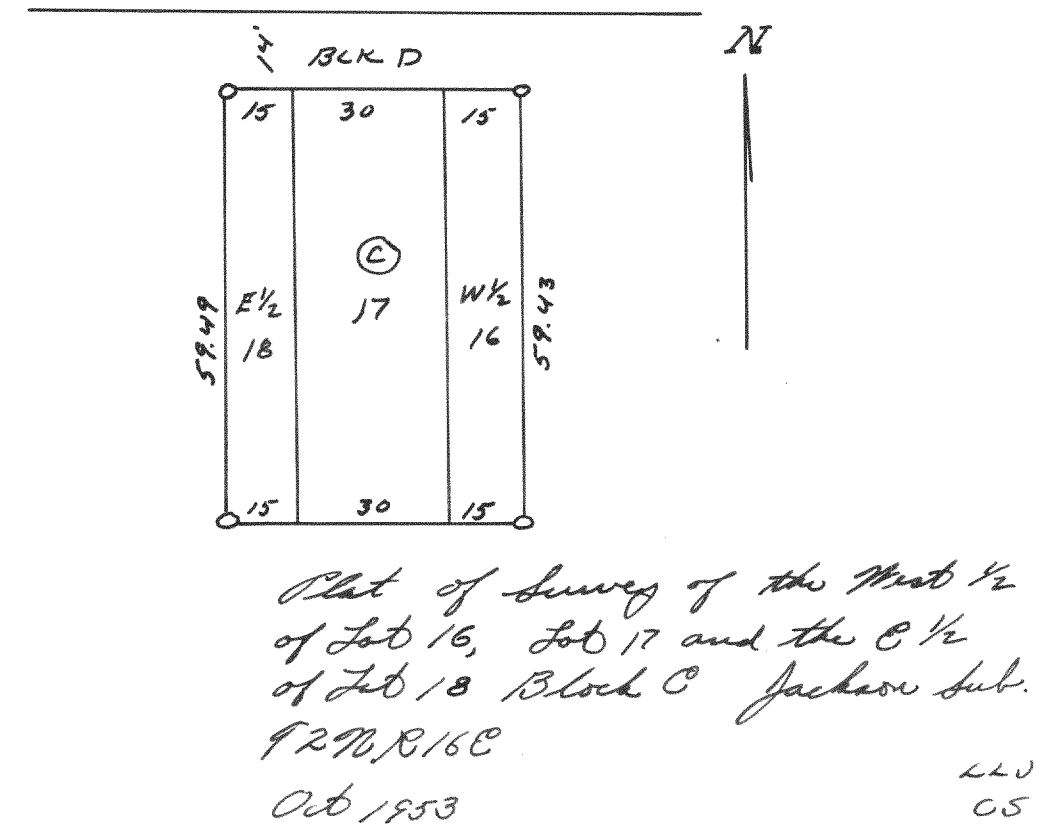 N
14'
BLK D
15 30 15
C
E 1/2
18
17
W 1/2
16
59.49
59.43
15 30 15
Plat of Survey of the West 1/2
of Lot 16, Lot 17 and the E 1/2
of Lot 18 Block C Jackson Sub.
T2N R16E
Oct 1953
LLV
CS